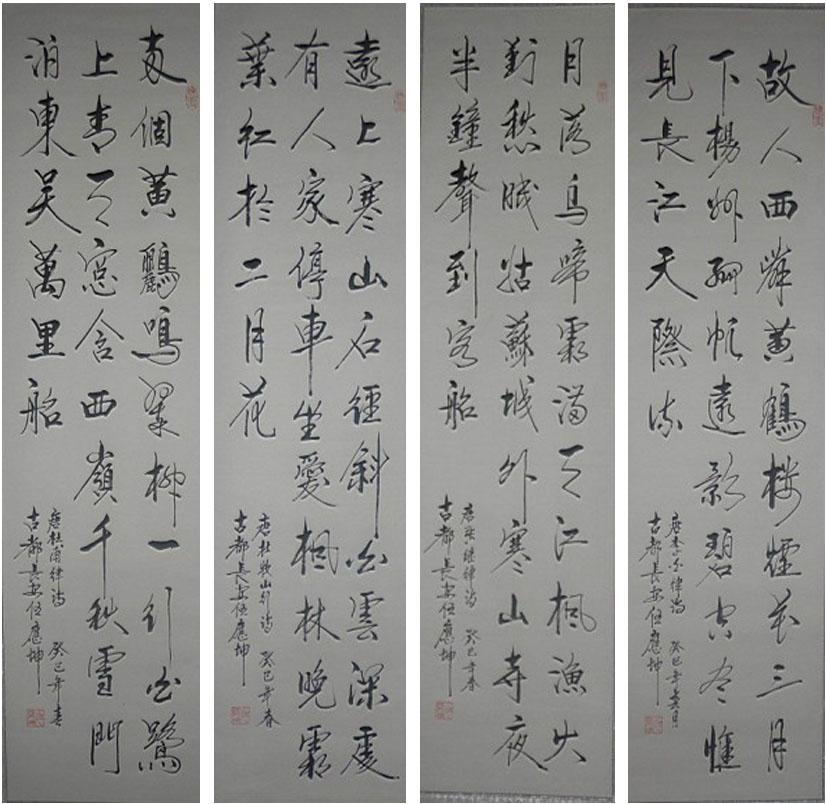 故人西辞黄鶴楼煙花三月
下楊州孤帆遠影碧空尽惟
見長江天際流
唐李白律诗 癸巳年 月
古都長安任應坤
月落烏啼霜满天江楓漁火
對愁眠姑蘇城外寒山寺夜
半鐘聲到客船
唐张继律诗 癸巳年春
古都長安任應坤
遠上寒山石徑斜白雲深處
有人家停車坐愛楓林晚霜
葉红於二月花
唐杜牧山行诗 癸巳年春
古都長安任應坤
两個黄鸝鳴翠柳一行白鷺
上青天窓含西嶺千秋雪門
泊東吴萬里船
唐杜甫律诗 癸巳年春
古都長安任應坤